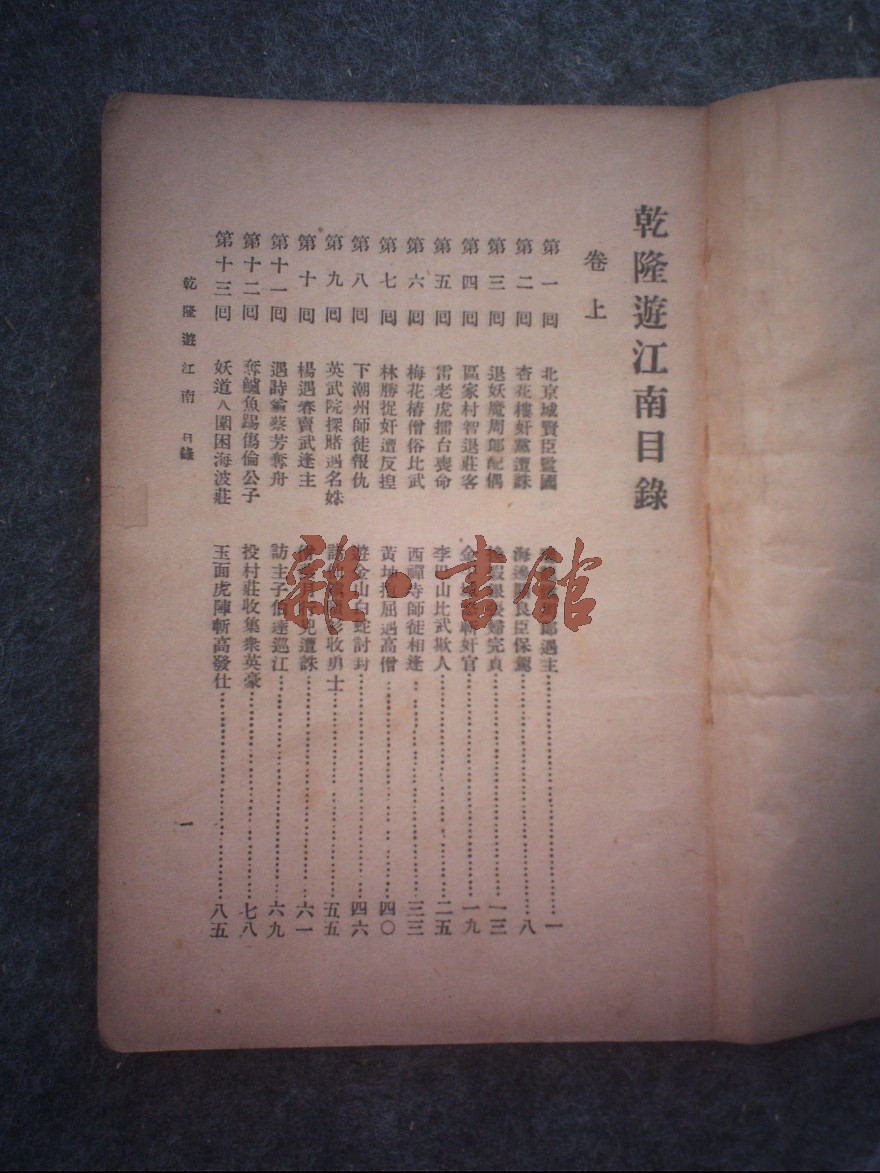 乾隆遊江南目錄
卷上
第一囘 北京城賢臣監國 郎遇主 一
第二囘 杏花樓奸黨遭誅 海邊關良臣保駕 八
第三囘 退妖魔周郎配偶 完貞 一三
第四囘 區家村智退莊客 金 斬奸官 一九
第五囘 雷老虎擂台喪命 李巴山比武欺人 二五
第六囘 梅花樁僧俗比武 西禪寺師徒相逢 三三
第七囘 林勝捉奸遭反捏 黃坤 屈遇高僧 四〇
第八囘 下潮州師徒報仇 遊金山白蛇討封 四六
第九囘 英武院探賭遇名姝 收勇士 五五
第十囘 楊遇春賣武逢主 兇遭誅 六一
第十一囘 遇詩翁蔡芳奪舟 訪主子伯達巡江 六九
第十二囘 奪鱸魚踢傷倫公子 投村莊收集衆英豪 七八
第十三囘 妖道人圍困海波莊 玉面虎陣斬高發仕 八五
乾隆遊江南 目錄
一
雜·書館